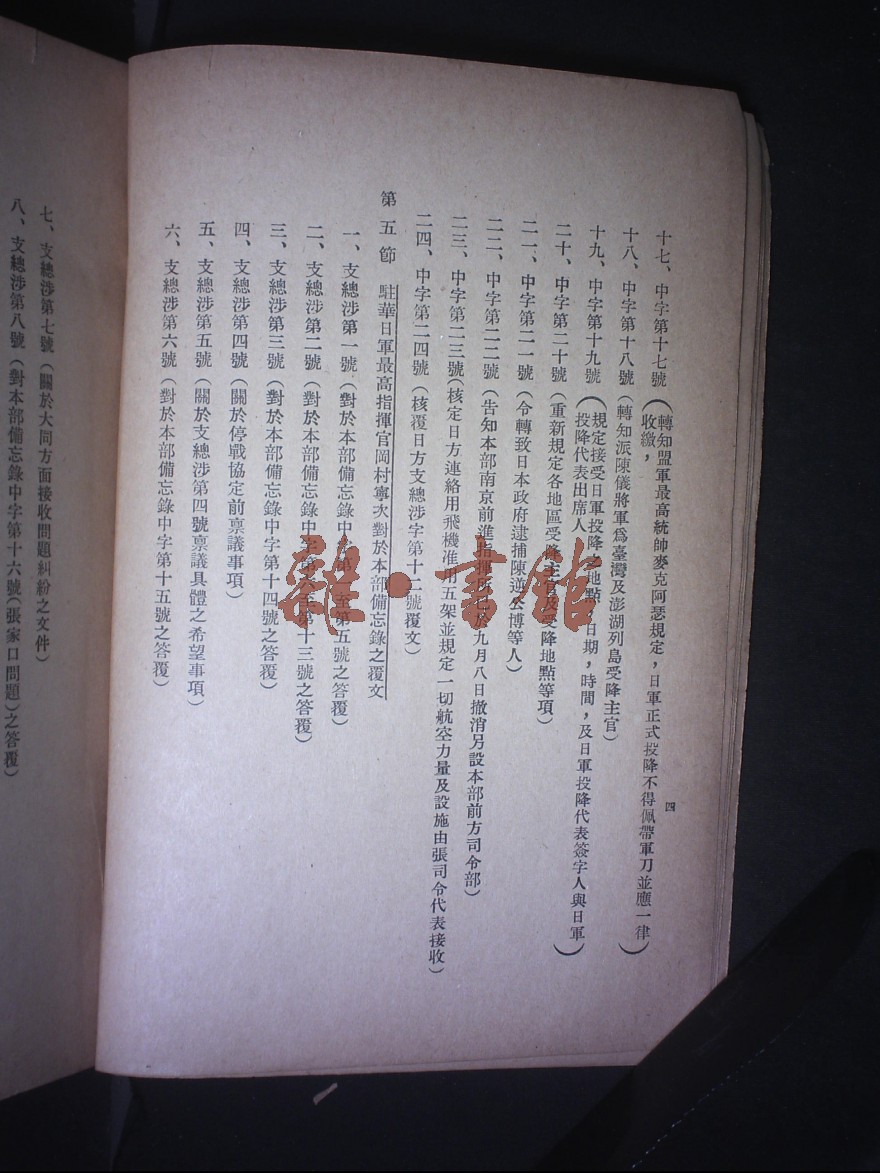 四
十七、中字第十七號（轉知盟軍最高統帥麥克阿瑟規定，日軍正式投降不得佩帶軍刀並應一律
收繳，）
十八、中字第十八號（轉知派陳儀將軍爲臺灣及澎湖列島受降主官）
十九、中字第十九號（規定接受日軍投降之地點，日期，時間，及日軍投降代表簽字人與日軍
投降代表出席人）
二十、中字第二十號（重新規定各地區受降主官及受降地點等項）
二一、中字第二一號（令轉致日本政府逮捕陳逆公博等人）
二二、中字第二二號（告知本部南京前進指揮所已於九月八日撤消另設本部前方司令部）
二三、中字第二三號（核定日方連絡用飛機准用五架並規定一切航空力量及設施由張司令代表接收）
二四、中字第二四號（核覆日方支總涉字第十二號覆文）
第五節 駐華日軍最高指揮官岡村寧次對於本部備忘錄之覆文
一、支總涉第一號（對於本部備忘錄中字第一至第五號之答覆）
二、支總涉第二號（對於本部備忘錄中字第六至第十三號之答覆）
三、支總涉第三號（對於本部備忘錄中字第十四號之答覆）
四、支總涉第四號（關於停戰協定前禀議事項）
五、支總涉第五號（關於支總涉第四號禀議具體之希望事項）
六、支總涉第六號（對於本部備忘錄中字第十五號之答覆）
七、支總涉第七號（關於大同方面接收問題糾紛之文件）
八、支總涉第八號（對本部備忘錄中字第十六號（張家口問題）之答覆）
雜·書館